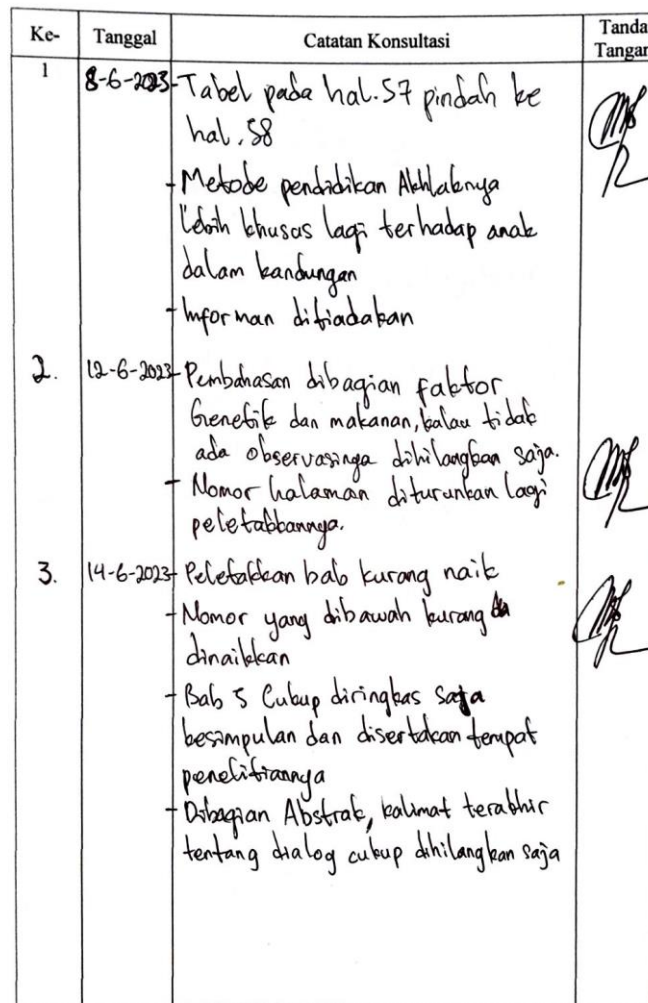 Ke- Tanggal Catatan Konsultasi Tanda Tangan
1 8-6-2023 - Tabel pada hal. 57 pindah ke
hal. 58
- Metode pendidikan Akhlaknya
lebih khusus lagi terhadap anak
dalam kandungan
- Informan ditiadakan
2. 12-6-2023 - Pembahasan dibagian faktor
Genetik dan makanan, kalau tidak
ada observasinya dihilangkan saja.
- Nomor halaman diturunkan lagi
peletakkannya.
3. 14-6-2023 - Peletakkan bab kurang naik
- Nomor yang dibawah kurang
dinaikkan
- Bab 5 Cukup diringkas saja
kesimpulan dan disertakan tempat
penelitiannya
- Dibagian Abstrak, kalimat terakhir
tentang dialog cukup dihilangkan saja